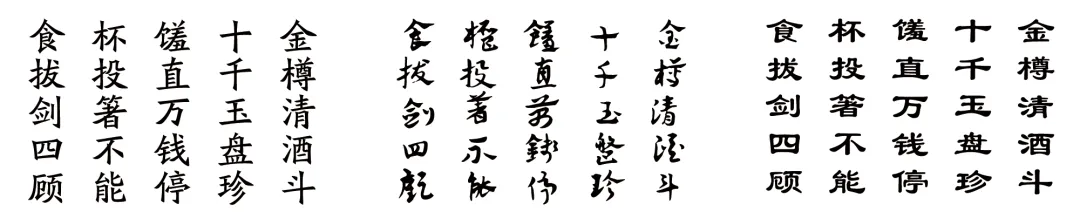 金樽清酒斗
十千玉盘珍
馐直万钱停
杯投箸不能
食拔剑四顾
金樽清酒斗
十千玉盤珍
饈直萬錢停
桮投箸不能
食拔劍四顧
金樽清酒斗
十千玉盘珍
馐直万钱停
杯投箸不能
食拔剑四顾